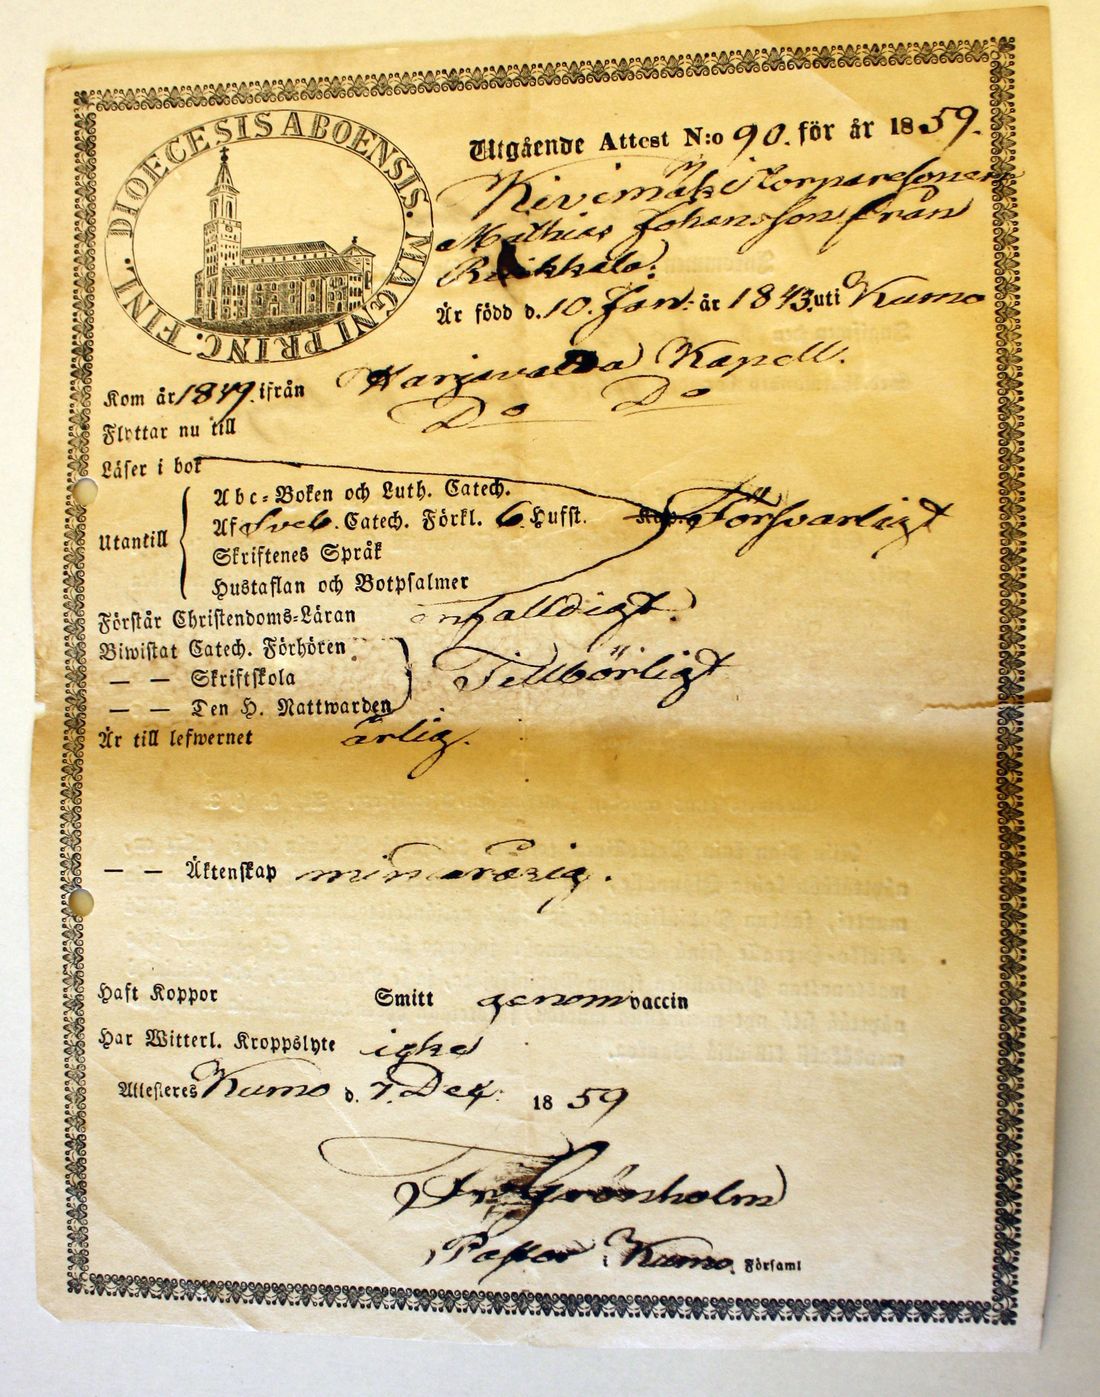 DIOECESIS ABOENSIS. MAGNI PRINC. FINL.
Utgående Attest N:o 90. för år 1859.
Kivimäki Torparesonen
Mathias Johansson från
Är född d. 10. Jan: år 1843. uti Kumo
Kom år 1849. ifrån Harjavalda Kapell.
Flyttar nu till Do Do
Läser i bok
Abc-Boken och Luth. Catech.
Utantill Af Sveb. Catech. Förkl. 6 Hufst. Kap. Försvarligt
Skriftenes Språk
Hustaflan och Botpsalmer
Förstår Christendoms-Läran enfalldigt.
Biwistat Catech. Förhören
— — Skriftskola Tillbörligt
— — Ten H. Nattwarden
Är till lefwernet ärlig.
— — Äktenskap minderårig.
Haft Koppor Smitt genom vaccin
Har Witterl. Kroppslyte icke
Attesteres Kumo d. 7. Dec: 1859
Fr Grönholm
Pastor i Kumo. Församl